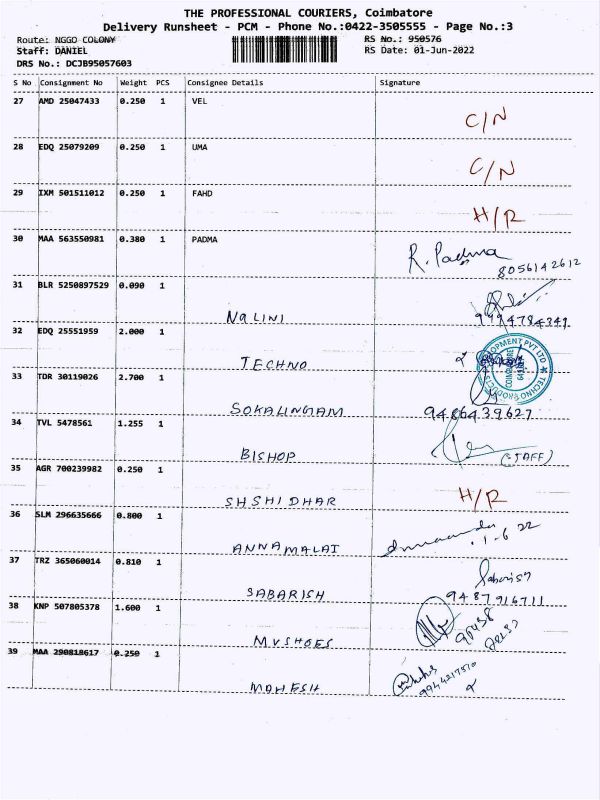 THE PROFESSIONAL COURIERS, Coimbatore
Delivery Runsheet - PCM - Phone No.:0422-3505555 - Page No.:3
Route: NGGO COLONY RS No.: 950576
Staff: DANIEL RS Date: 01-Jun-2022
DRS No.: DCJB95057603
S No Consignment No Weight PCS Consignee Details Signature
27 AMD 25047433 0.250 1 VEL
C/N
28 EDQ 25079209 0.250 1 UMA
C/N
29 IXM 501511012 0.250 1 FAHD
H/R
30 MAA 563550981 0.380 1 PADMA
R. Padma
8056142612
31 BLR 5250897529 0.090 1
NALINI 9994784341
32 EDQ 25551959 2.000 1
TECHNO
33 TDR 30119026 2.700 1
SOKALINGAM 9486439627
34 TVL 5478561 1.255 1
BISHOP (STAFF)
35 AGR 700239982 0.250 1
SHSHIDHAR H/R
36 SLM 296635666 0.800 1
ANNAMALAI 1-6 22
37 TRZ 365060014 0.810 1
SABARISH 9487916711
38 KNP 507805378 1.600 1
MVSHOES
39 MAA 290818617 0.250 1
MAHESH